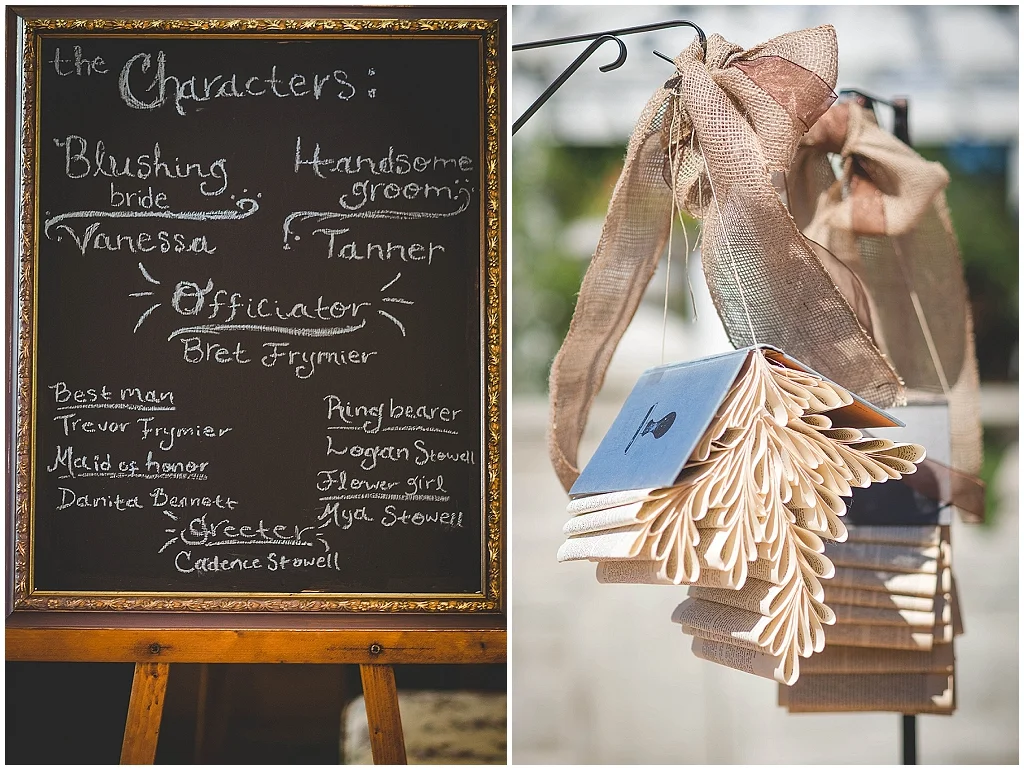 the Characters:
Blushing
bride
Vanessa
Handsome
groom
Tanner
Officiator
Bret Frymier
Best man
Trevor Frymier
Maid of honor
Danita Bennett
Ring bearer
Logan Stowell
Flower girl
Mya Stowell
Greeter
Cadence Stowell